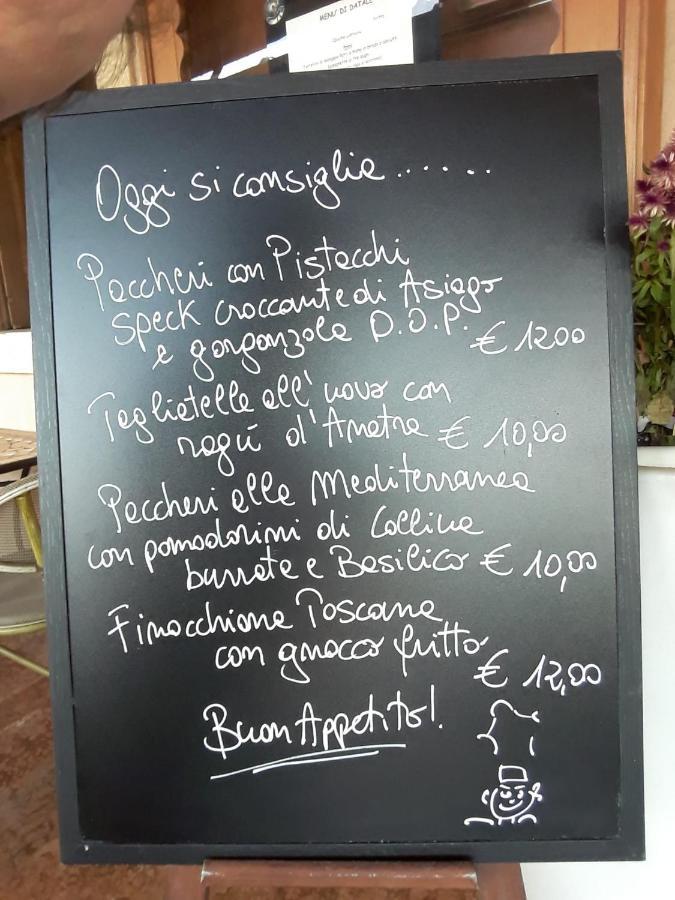 MENU DI NATALE
Oggi si consiglia.......
Paccheri con Pistacchi
speck croccante di Asiago
e gorgonzola D.O.P. € 12 00
Tagliatelle all'uovo con
ragù d'Anatra € 10,00
Paccheri alla Mediterranea
con pomodorini di Collina
burrata e Basilico € 10,00
Finocchiona Toscana
con gnocco fritto
€ 12,00
Buon Appetito!